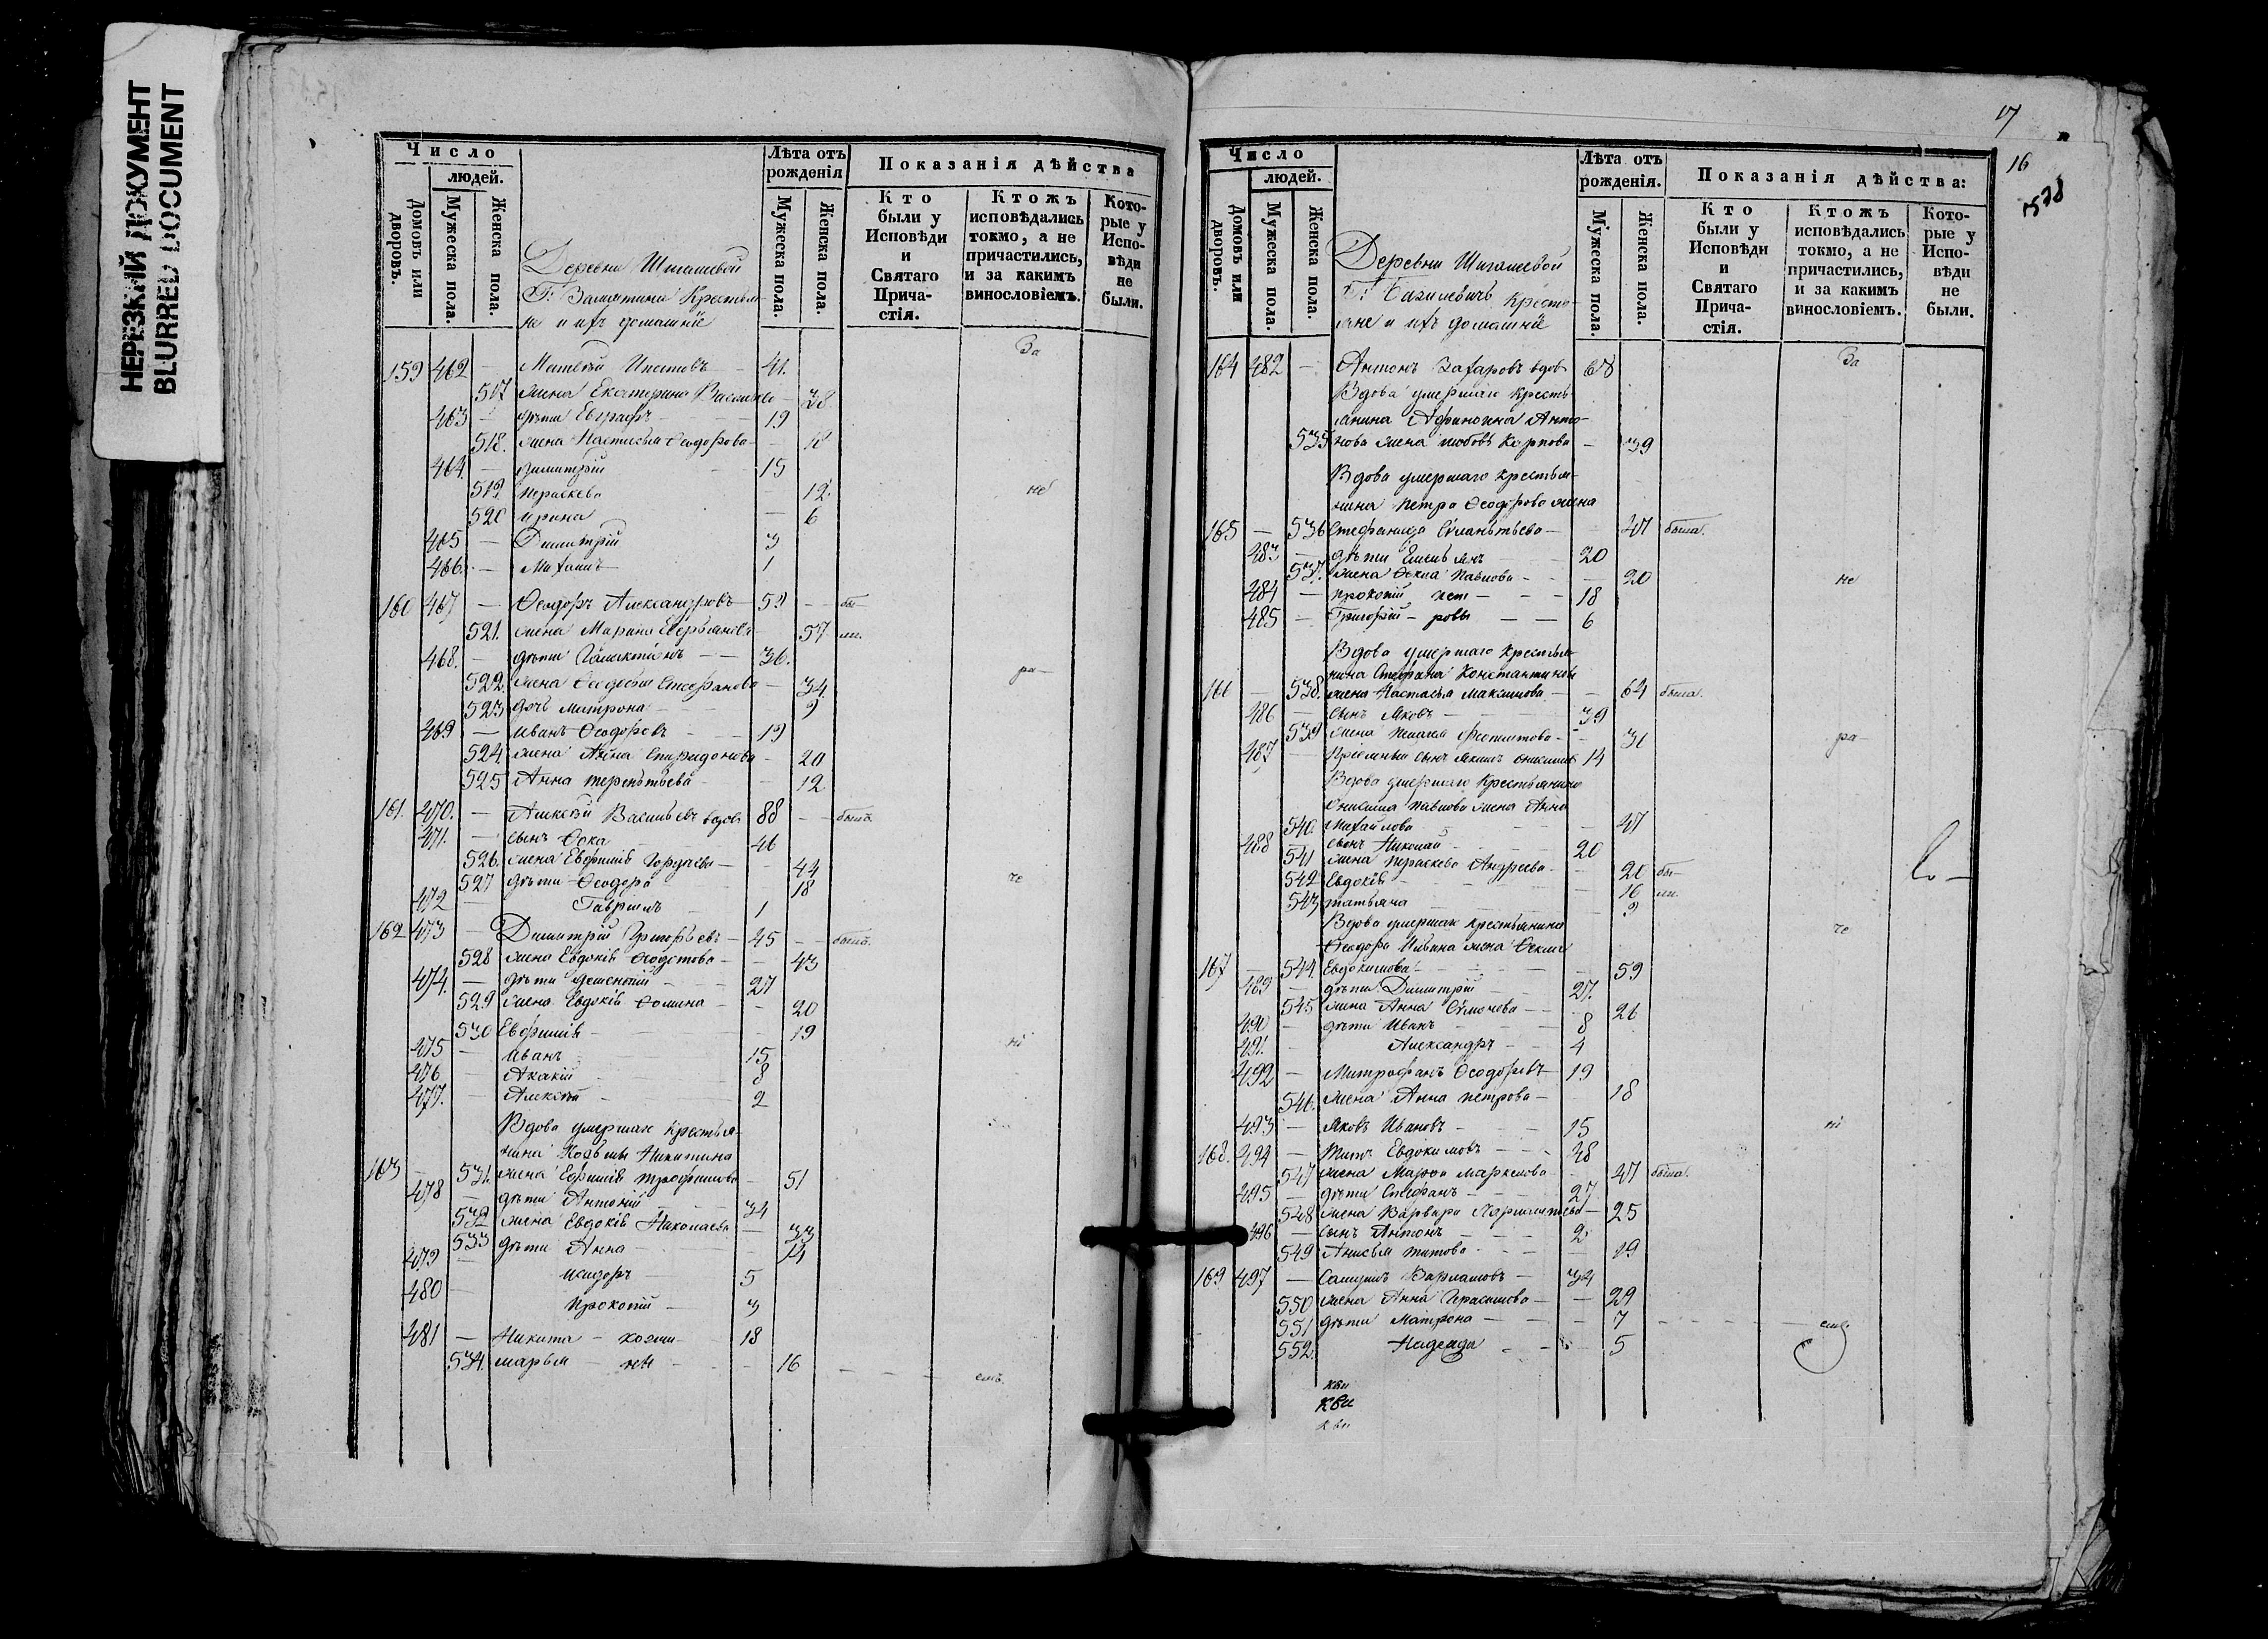 НЕРЕЗКИЙ ДОКУМЕНТ
BLURRED DOCUMENT
Число
людей.
Домовъ или дворовъ.
Мужеска пола.
Женска пола.
Лѣта отъ рожденія
Мужеска пола.
Женска пола.
Показанія дѣйства
Кто были у Исповѣди и Святаго Прича-стія.
Ктожъ исповѣдались токмо, а не причастились, и за какимъ винословіемъ.
Кото-рые у Испо-вѣди не были.
Деревни
Г. Замятина Крестья-
не и ихъ домашніе
За
159 462 — Матвѣй Ипатовъ — 41.
517 жена Екатерина Васильева — 38.
463 — дѣти Евграфъ — 19
518. жена Настасья Ѳеодорова — 18
464. — Димитрій — 15
519. Параскева — 12. не
520 Ирина — 6
465 — Димитрій 3
466. — Михаилъ 1
160 467 — Ѳеодоръ Александровъ 59 — бы-
521. жена Марина — 57 ли.
468. — дѣти 36.
522. жена Ѳеодосія Стефанова — 34. ра-
523 дочь Матрона — 9
469 — Иванъ Ѳеодоровъ — 19
524 жена Анна Спиридонова — 20
525 Анна Терентьева — 12.
161. 470. — Алексѣй Васильевъ вдовъ 88 — былъ.
471. — сынъ Ѳока 46
526. жена Евфимія Гордѣева — 44
527 дѣти Ѳеодора 18 че
472 — Гавріилъ 1
162 473 — Димитрій Григорьевъ — 45 — былъ.
528 жена Евдокія Ѳеодотова — 43
474. — дѣти 27
529 жена Евдокія Ѳомина — 20
530 Евфимія — 19
475 — Иванъ 15 ні
476 — Акакій 8
477. — Алексѣй — 2
Вдова умершаго крестья-
нина Козьмы Никитина
163 — 531. жена Евфимія Трофимова — 51
478 — дѣти Антоній 34
532 жена Евдокія Николаева — 33
533 дѣти Анна — 14
479 — Исидоръ — 5
480 — Прокопій — 3
481 — Никита — козми- 18
534. Марья — ны — 16 — емъ.
17
16
Число
людей.
Домовъ или дворовъ.
Мужеска пола.
Женска пола.
Лѣта отъ рожденія.
Мужеска пола.
Женска пола.
Показанія дѣйства:
Кто были у Исповѣди и Святаго Прича-стія.
Ктожъ исповѣдались токмо, а не причастились, и за какимъ винословіемъ.
Кото-рые у Испо-вѣди не были.
Деревни
Г. Базилевичъ Кресть-
яне и ихъ домашніе
За
164 482 — Антонъ Захаровъ вдовъ 68
Вдова умершаго кресть-
янина Афиногена Анто-
535 нова жена Любовь Карпова — 39
Вдова умершаго крестья-
нина Петра Ѳеодорова жена
165 — 536 Стефанида — 47 была.
483 — дѣти Емельянъ 20
537. жена Ѳекла Павлова — 20 не
484 — Прокопій Пет — 18
485 — Григорій — ровы — 6
Вдова умершаго крестья-
нина Стефана Константинова
166 — 538. жена Настасья Максимова — 64 была.
486 — сынъ Яковъ — 39
539 жена Пелагія — 31 ра-
487 — сынъ 14
Вдова умершаго крестьянина
Онисима Павлова жена Анна
540. Михайлова — 47
488 — сынъ Николай — 20
541 жена Параскева Андреева — 20 бы-
542 Евдокія — 16 ли.
543 Татьяна — 9
Вдова умершаго крестьянина че
Ѳеодора Ильина жена Ѳекла
167 — 544. Евдокимова — 59
489 — дѣти Димитрій 27.
545 жена Анна — 26
490 — дѣти Иванъ — 8
491. — Александръ — 4
492 — Митрофанъ Ѳеодоровъ 19
546. жена Анна Петрова — 18
493 — Яковъ Ивановъ — 15 ні
168. 494 — Титъ Евдокимовъ — 48
547 жена Марѳа Маркелова — 47 была.
495 — дѣти Стефанъ — 27
548 жена Варвара — 25
496 — сынъ Антонъ — 2
549 Анисья Титова — 19
169 497 — Самуилъ Варламовъ — 34
550 жена Анна Герасимова — 29
551 дѣти Матрона — 7 — емъ.
552. Надежда — 5
кви
кви
кви